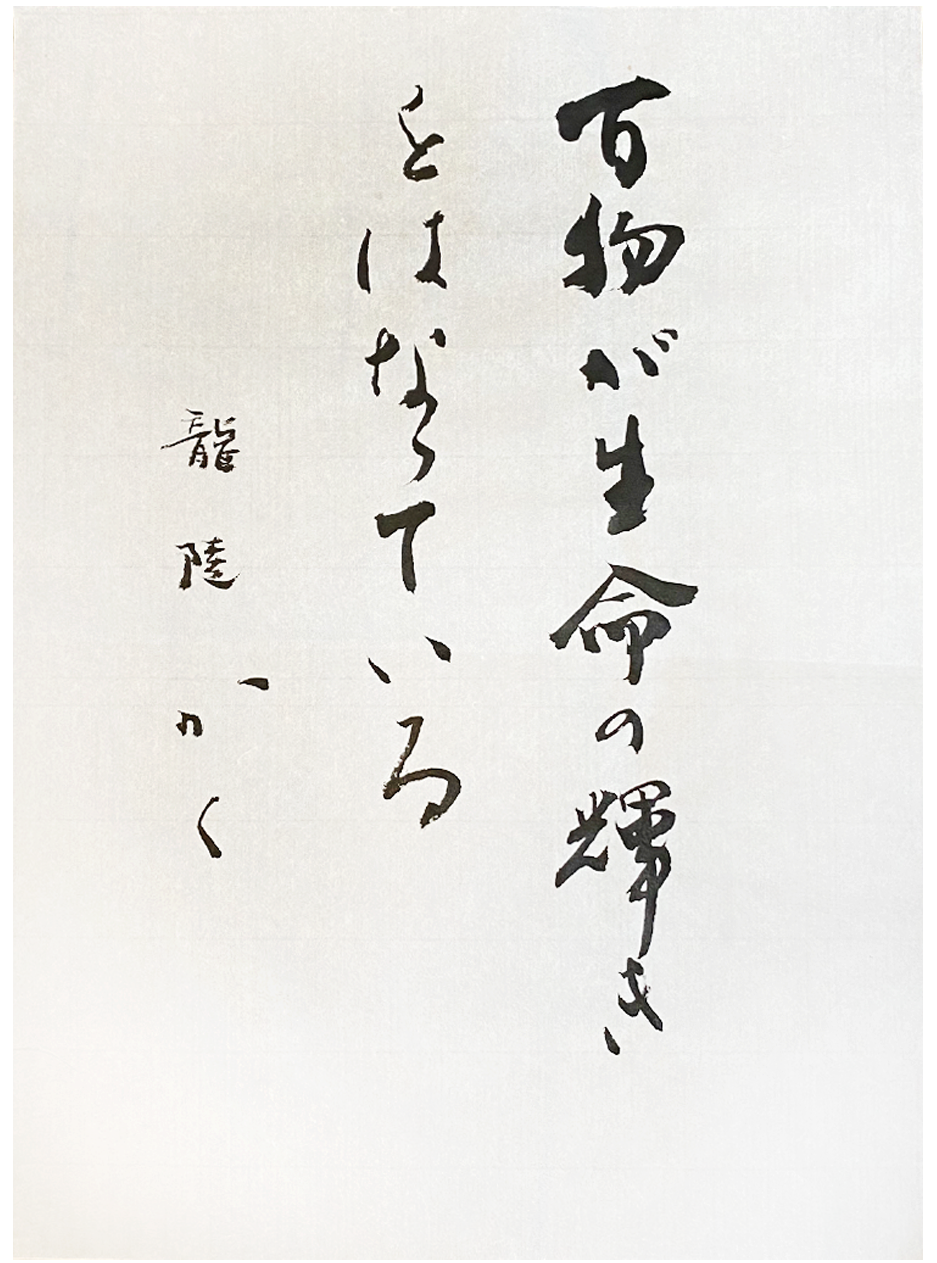 百物が生命の輝き
をはなっている
龍陸かく